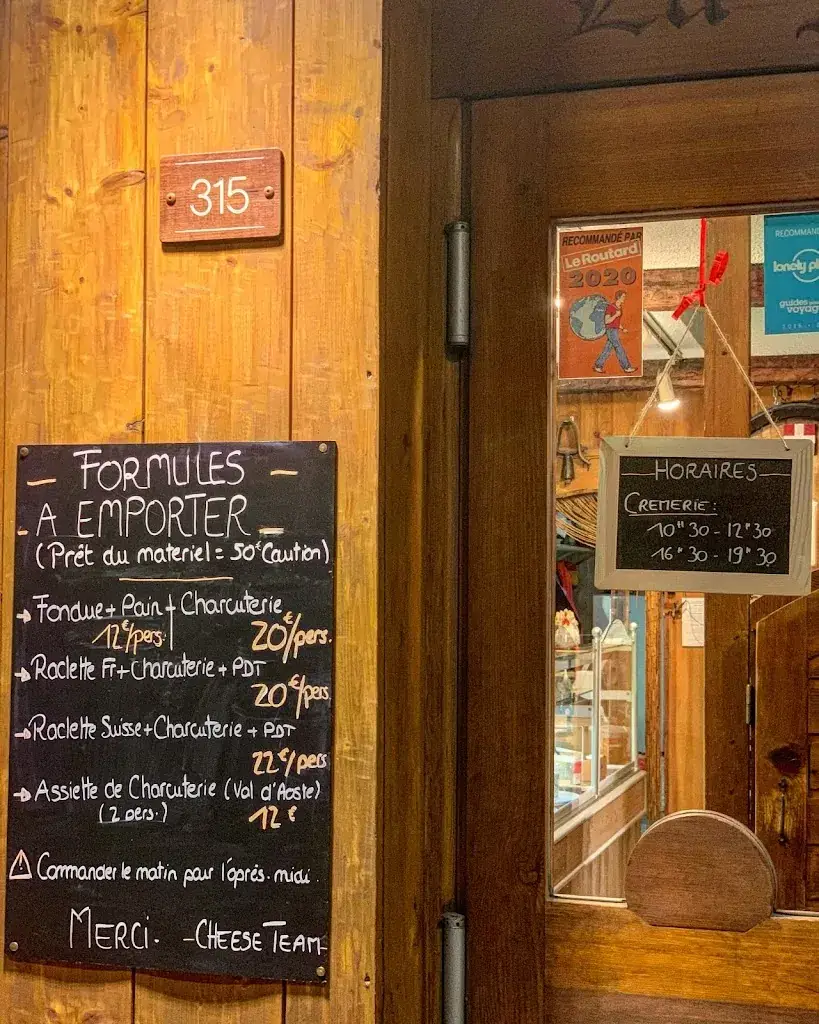 315
FORMULES
A EMPORTER
(Prêt du materiel = 50€ Caution)
Fondue + Pain + Charcuterie
12€/pers. 20€/pers.
Raclette Fr + Charcuterie + PDT
20€/pers
Raclette Suisse + Charcuterie + PDT
22€/pers
Assiette de Charcuterie (Val d'Aoste)
(2 pers.) 12€
Commander le matin pour l'après-midi.
MERCI. -CHEESE TEAM-
La
RECOMMANDÉ PAR
Le Routard
2020
RECOMMAN
lonely pl
guides
voyag
HORAIRES
CREMERIE:
10H30 - 12H30
16H30 - 19H30